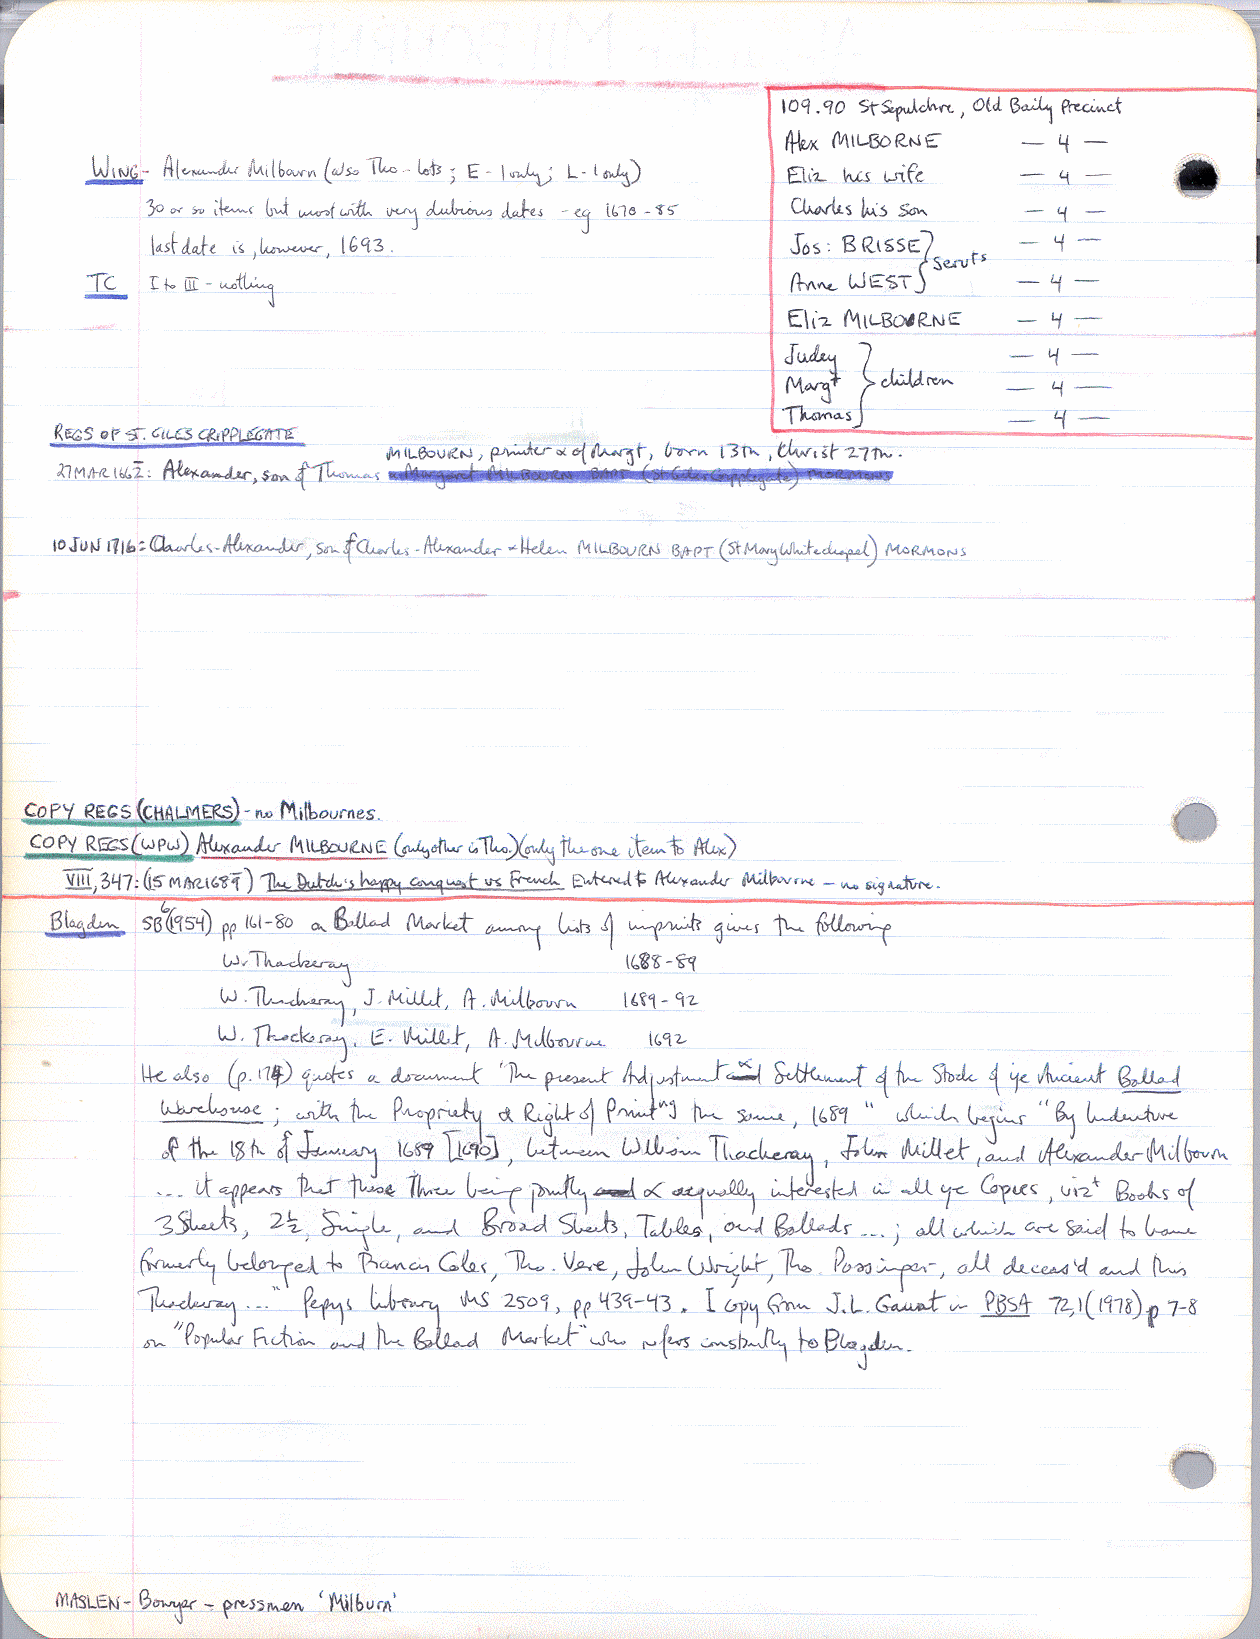 109.90 St Sepulchre, Old Baily Precinct
Alex MILBORNE — 4 —
Eliz his wife — 4 —
Charles his son — 4 —
Jos: BRISSE — 4 —
servts
Anne WEST — 4 —
Eliz MILBORNE — 4 —
Judey — 4 —
Margt children — 4 —
Thomas — 4 —
WING - Alexander Milbourn (also Tho - lots; E - 1 only; L - 1 only)
30 or so items but most with very dubious dates - eg 1670-85
last date is, however, 1693.
TC I to III - nothing
REGS OF ST. GILES CRIPPLEGATE
MILBOURN, printer & of Margt, born 13th, Christ 27th.
27 MAR 1662: Alexander, son of Thomas
10 JUN 1716: Charles-Alexander, son of Charles-Alexander & Helen MILBOURN BAPT (St Mary Whitechapel) MORMONS
COPY REGS (CHALMERS) - no Milbournes.
COPY REGS (WPW) Alexander MILBOURNE (only other is Tho.) (only the one item to Alex)
VIII, 347: (15 MAR 1689) The Dutch's happy conquest vs French Entered to Alexander Milbourne - no signature.
Blagden SB 6 (1954) pp 161-80 on Ballad Market among lists of imprints gives the following
W. Thackeray 1688-89
W. Thackeray, J. Millet, A. Milbourn 1689-92
W. Thackeray, E. Millet, A. Milbourne 1692
He also (p. 174) quotes a document "The present Adjustment & Settlement of the Stock of ye Ancient Ballad
Warehouse; with the Propriety & Right of Printng the same, 1689" which begins "By Indenture
of the 18th of January 1689 [1690], between William Thackeray, John Millet, and Alexander Milbourn
... it appears that these Three being jointly & aequally interested in all ye Copies, vizt Books of
3 Sheets, 2½, Single, and Broad Sheets, Tables, and Ballads ...; all which are said to have
formerly belonged to Francis Coles, Tho. Vere, John Wright, Tho. Passinger, all deceas'd and this
Thackeray ..." Pepys library MS 2509, pp 439-43. I copy from J.L. Gaunt in PBSA 72,1 (1978) p 7-8
on "Popular Fiction and the Ballad Market" who refers constantly to Blagden.
MASLEN - Bowyer - pressmen 'Milburn'